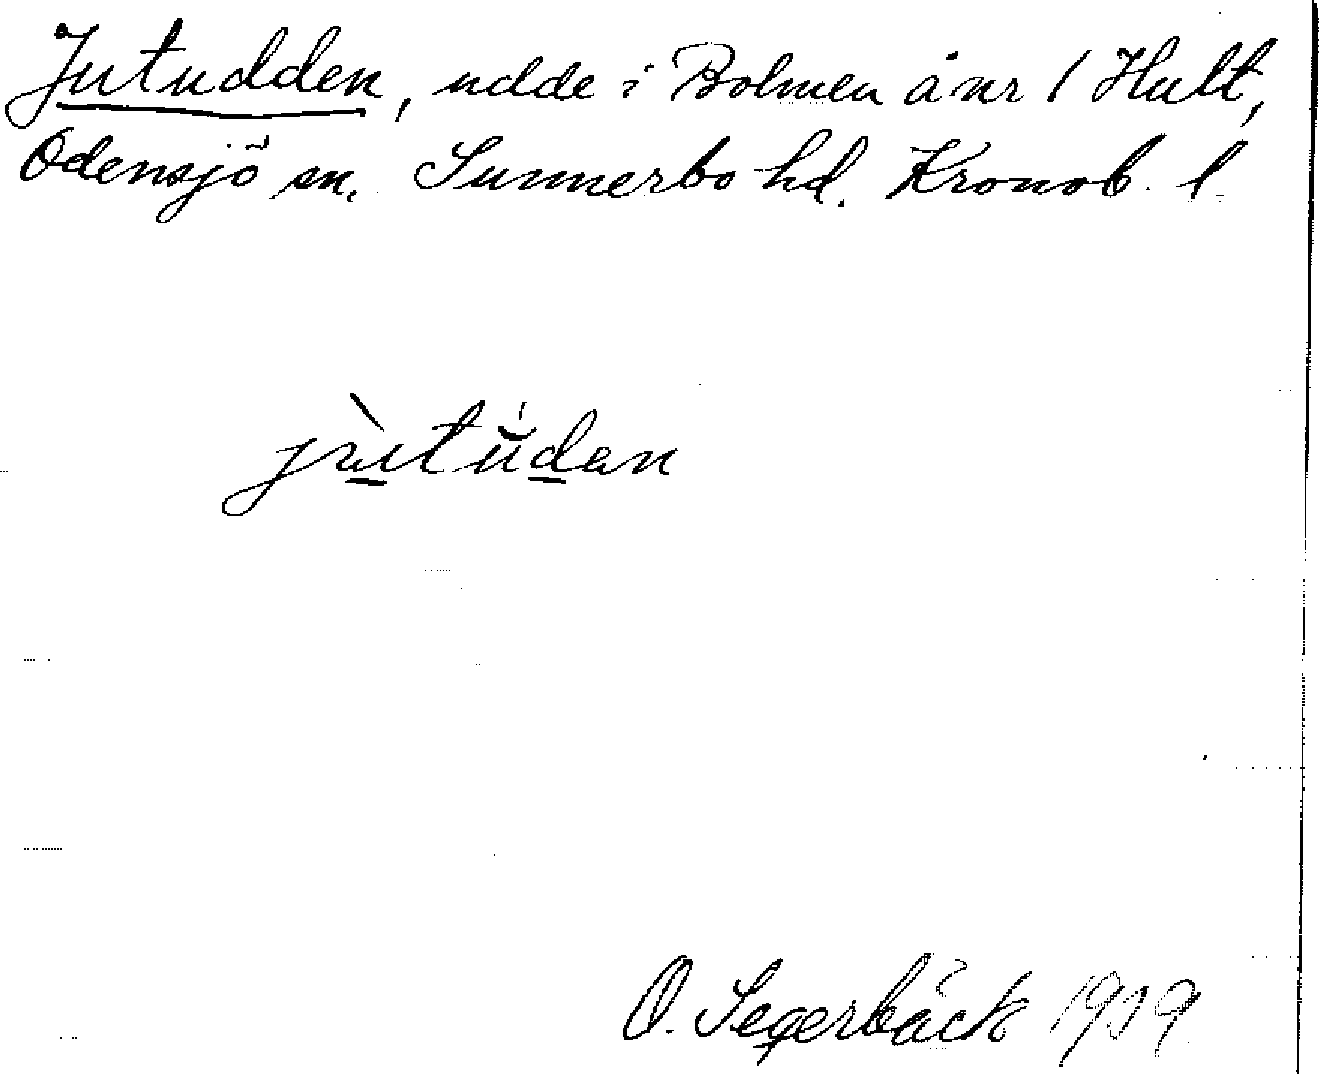 Jutudden, udde i Bolmen å nr 1 Hult,
Odensjö sn. Sunnerbo hd. Kronob. l.
jùtŭdan
O. Segerbäck 1919